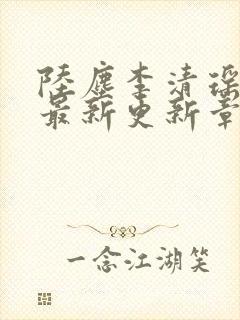 陸塵李清瑶
最新更新章
一念江湖笑